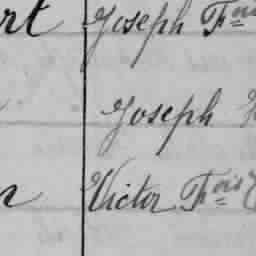 rt Joseph Fois
Joseph
n Victor Fois